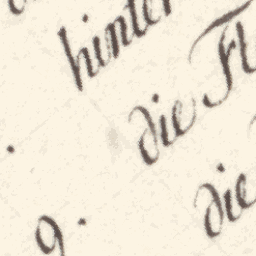 hinter
die Fl
9. die